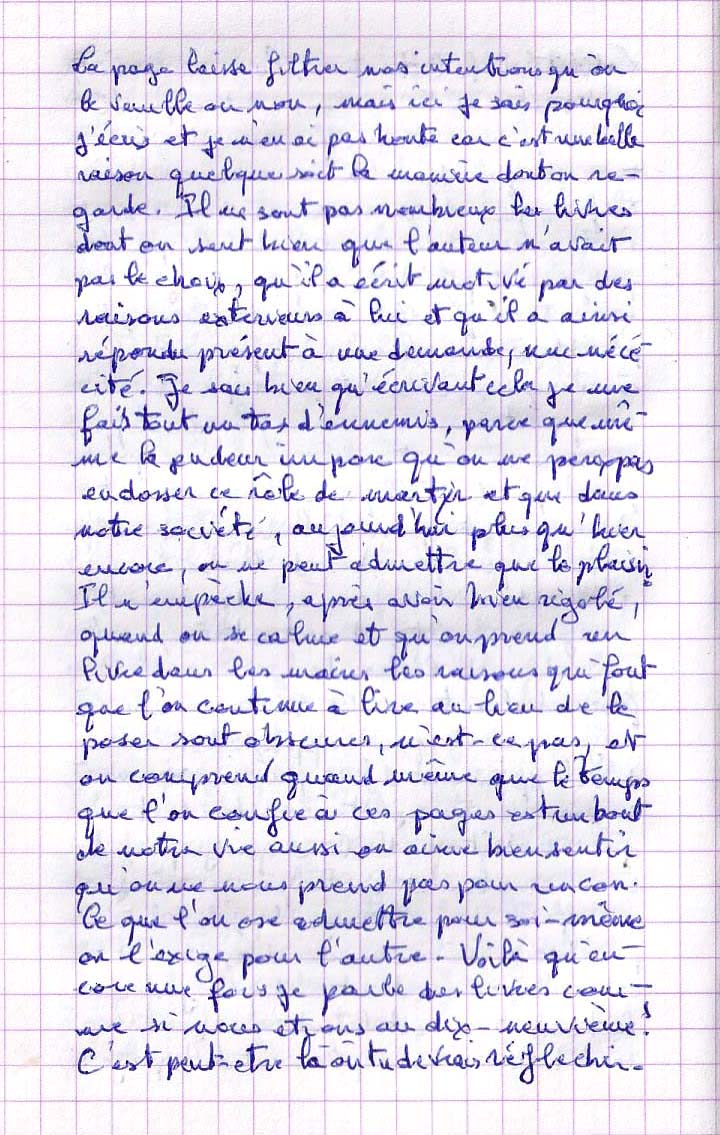 La page laisse filtrer nos intentions qu'on
le veuille ou non, mais ici je sais pourquoi
j'écris et je n'en ai pas honte car c'est une belle
raison quelque soit la manière dont on re-
garde. Il ne sont pas nombreux les livres
dont on sent bien que l'auteur n'avait
pas le choix, qu'il a écrit motivé par des
raisons exterieurs à lui et qu'il a ainsi
répondu présent à une demande, une nécé-
cité. Je sais bien qu'écrivant cela je me
fais tout un tas d'ennemis, parce que mê-
me la pudeur impose qu'on ne peux pas
endosser ce rôle de martyr et que dans
notre société, aujourd'hui plus qu'hier
encore, on ne peut admettre que le plaisir.
Il n'empèche, après avoir bien rigolé,
quand on se calme et qu'on prend un
livre dans les mains les raisons qui font
que l'on continue à lire au lieu de le
poser sont obscures, n'est-ce pas, et
on comprend quand même que le temps
que l'on confie à ces pages est un bout
de notre vie aussi on aime bien sentir
qu'on ne nous prend pas pour un con.
Ce que l'on ose admettre pour soi-même
on l'exige pour l'autre. Voilà qu'en-
core une fois je parle des livres com-
me si nous etions au dix-neuvième!
C'est peut-etre là où tu devrais réflechir.